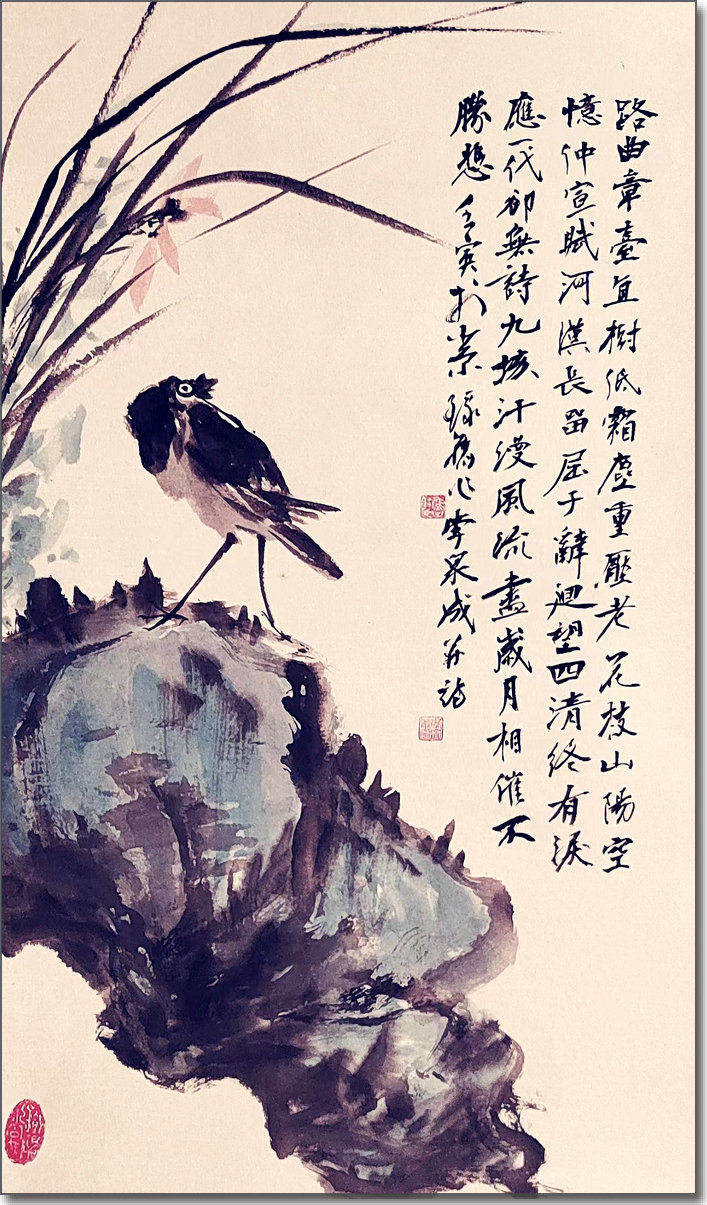 路曲章臺直樹低霜塵重壓老花枝山陽空
憶仲宣賦河漢長留屈子辭迴望四清終有淚
應一代卻無詩九垓汗漫風流盡歲月相催不
勝悲 壬寅於 錄舊作李泉成并詩